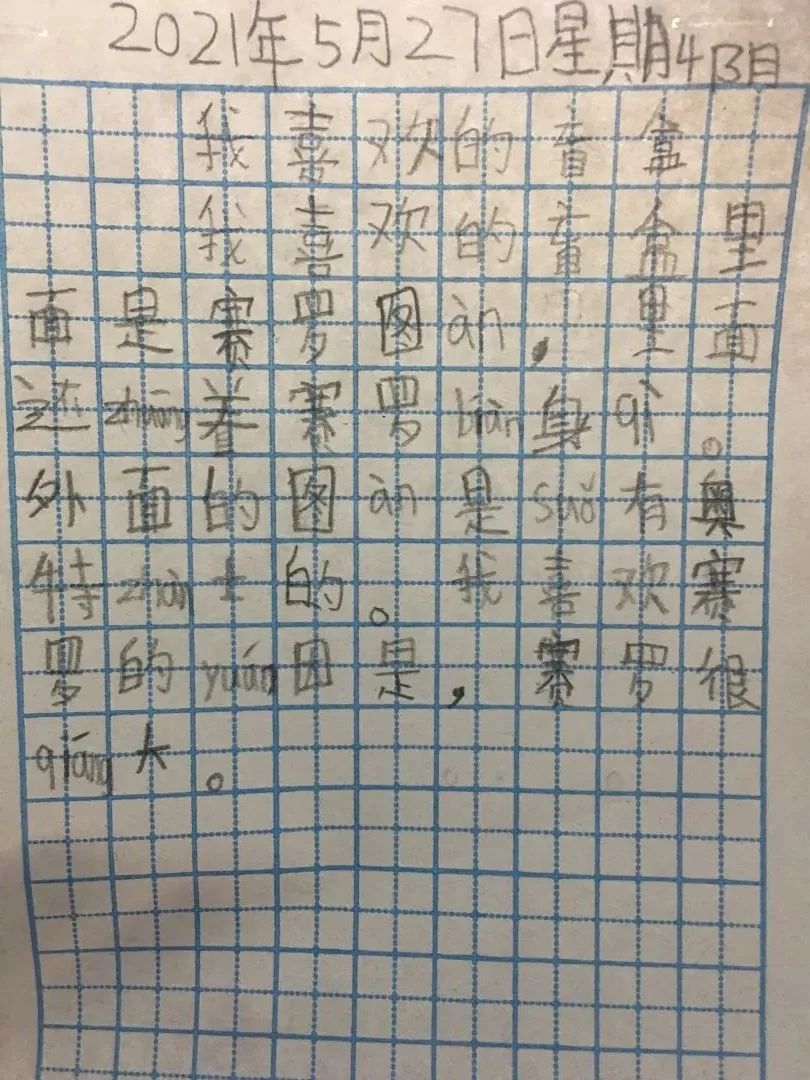 2021年5月27日星期4阴
我喜欢的盲盒
我喜欢的盲盒里
面是赛罗图àn，里面
还zhuāng着赛罗biàn身qì。
外面的图àn是suǒ有奥
特zhàn士的。我喜欢赛
罗的yuán因是，赛罗很
qiáng大。